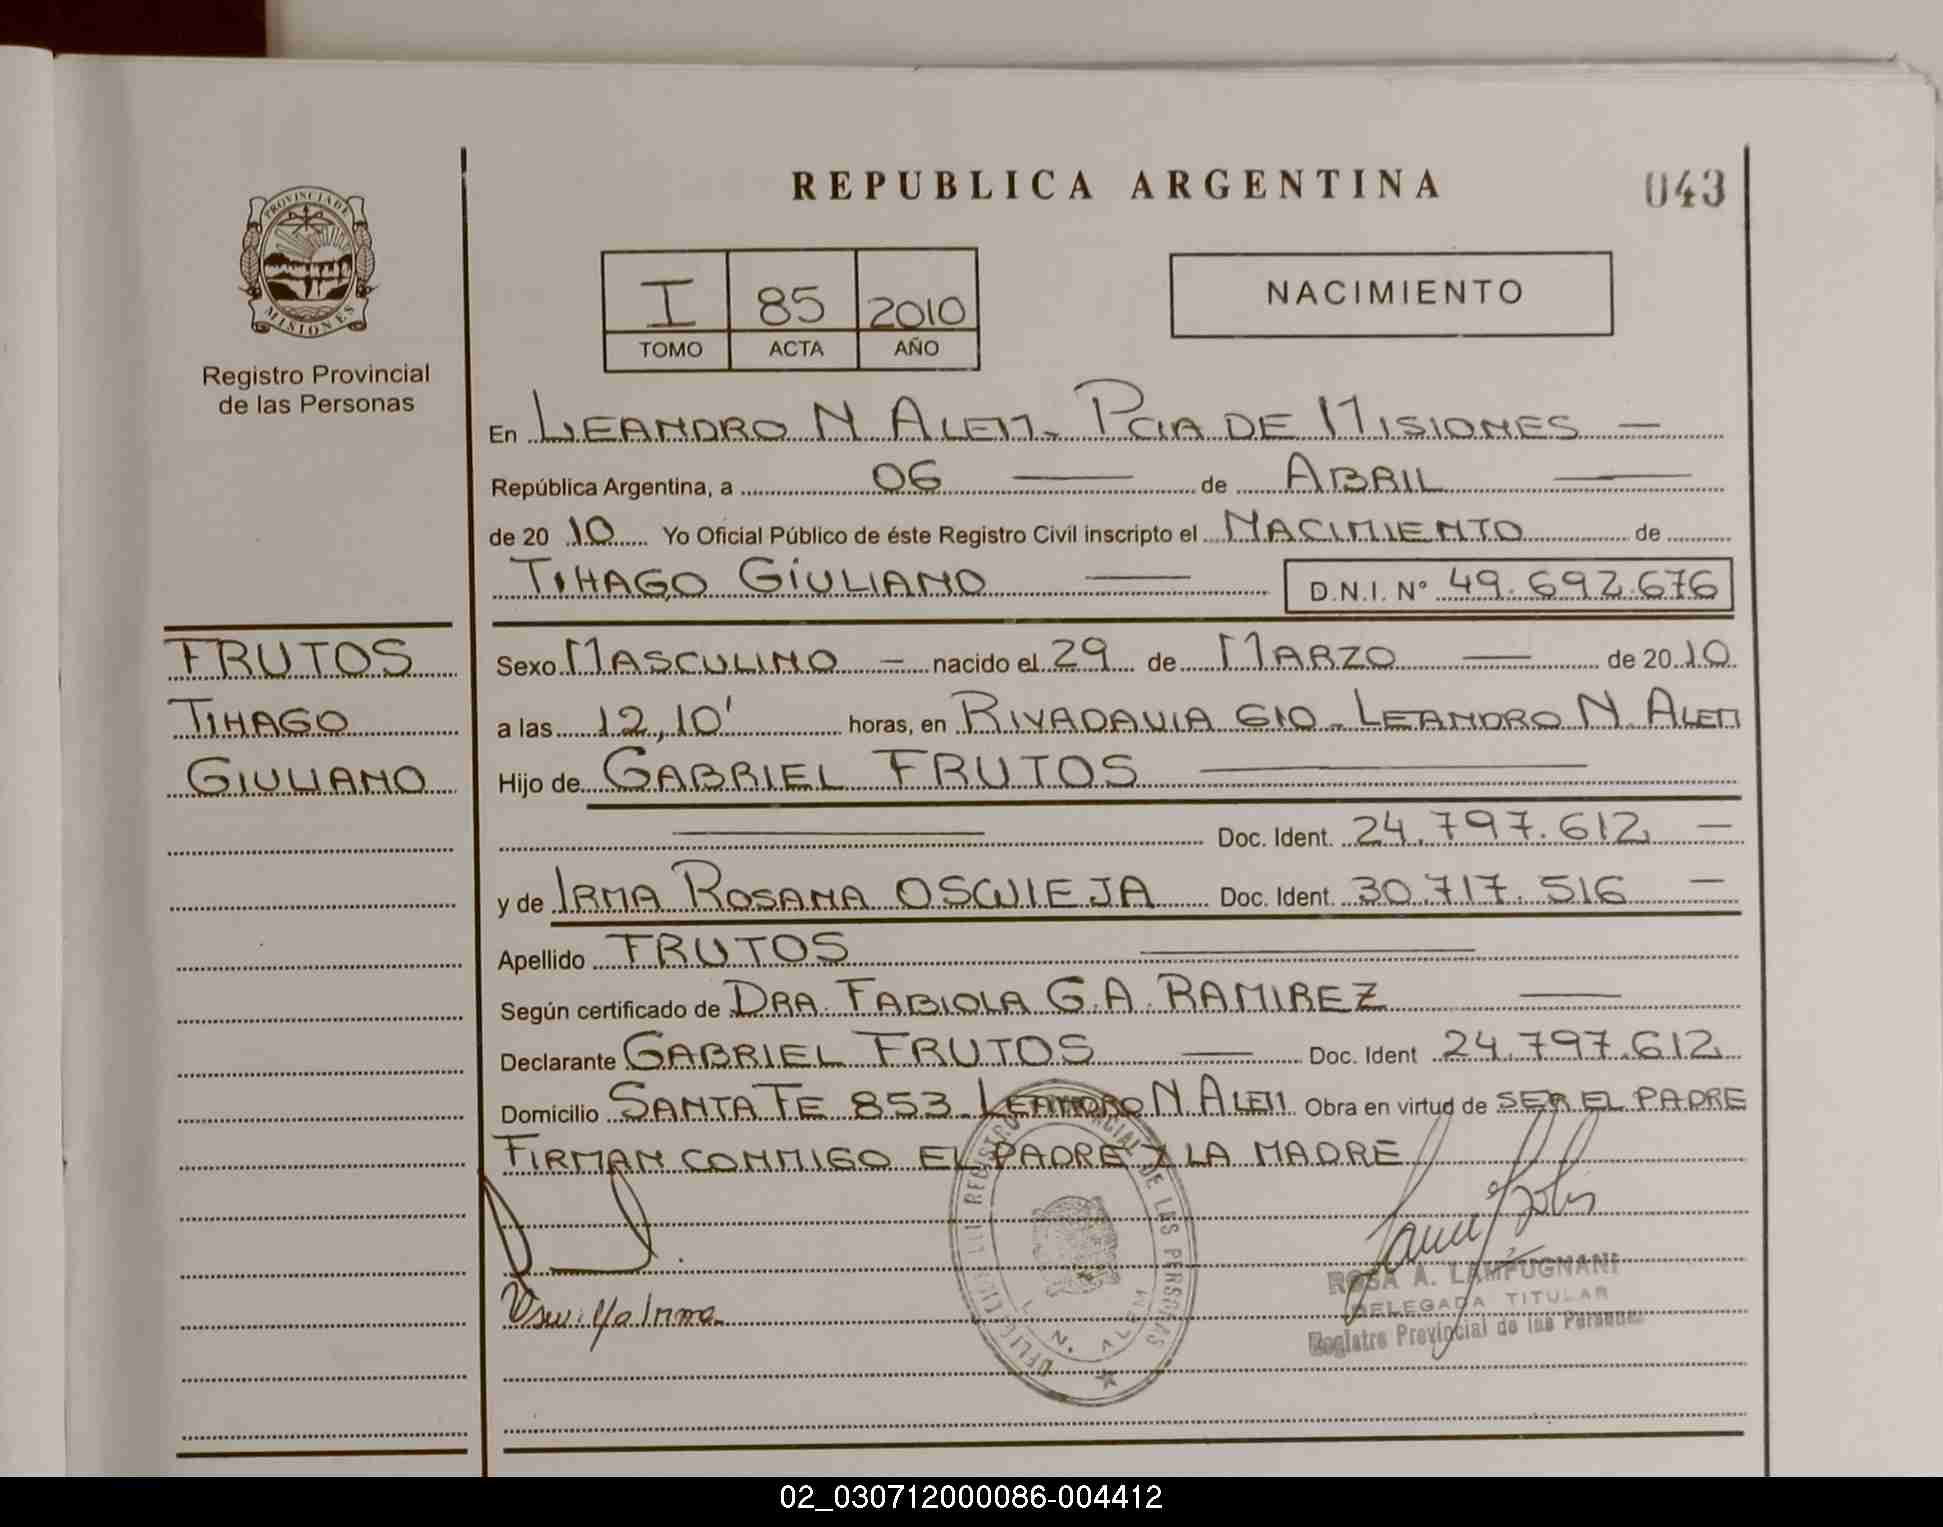 REPUBLICA ARGENTINA
043
PROVINCIA DE
MISIONES
Registro Provincial
de las Personas
I 85 2010
TOMO ACTA AÑO
NACIMIENTO
En LEANDRO N ALEM. PCIA DE MISIONES —
República Argentina, a 06 — de ABRIL —
de 20 10 Yo Oficial Público de éste Registro Civil inscripto el NACIMIENTO de
TIHAGO GIULIANO — D.N.I. Nº 49.692.676
FRUTOS
TIHAGO
GIULIANO
Sexo MASCULINO — nacido el 29 de MARZO — de 20 10
a las 12,10' horas, en RIVADAVIA 610 - LEANDRO N ALEM
Hijo de GABRIEL FRUTOS —
— Doc. Ident. 24.797.612 —
y de IRMA ROSANA OSWIEJA Doc. Ident. 30.717.516 —
Apellido FRUTOS —
Según certificado de DRA. FABIOLA G.A. RAMIREZ —
Declarante GABRIEL FRUTOS — Doc. Ident 24.797.612
Domicilio SANTA FE 853 - LEANDRO N ALEM Obra en virtud de SER EL PADRE
FIRMAN CONMIGO EL PADRE Y LA MADRE
Irma
DE LAS PERSONAS
L. N. ALEM
ROSA A. LAMPUGNANI
DELEGADA TITULAR
Registro Provincial de las Personas
02_030712000086-004412